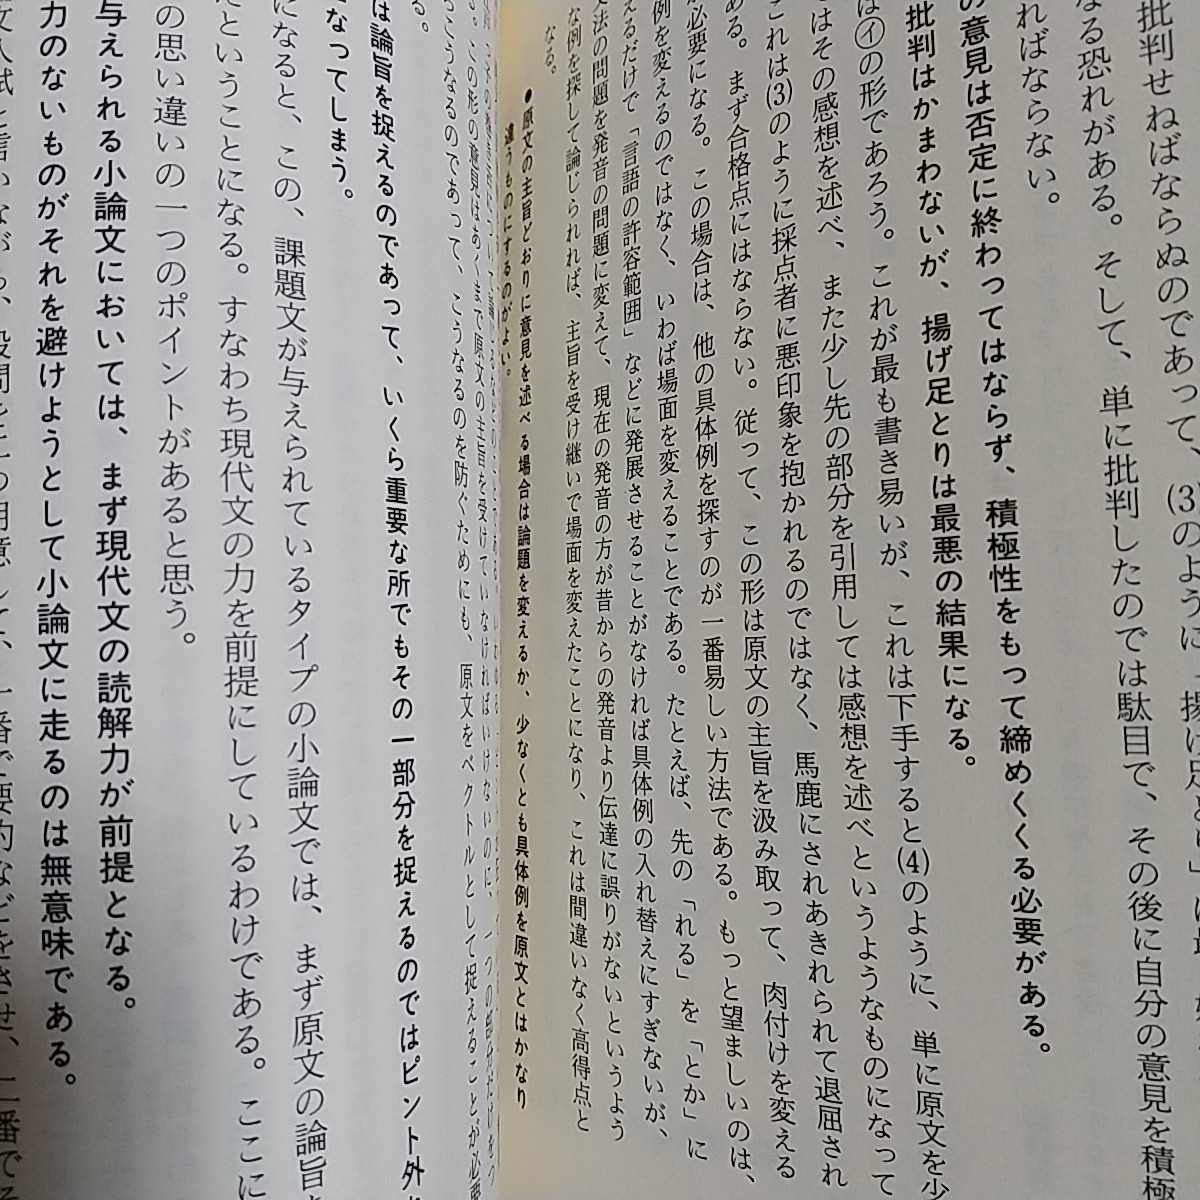 批判せねばならぬのであって、(3)のように「揚げ足とり」は最
なる恐れがある。そして、単に批判したのでは駄目で、その後に自分の意見を積極
ればならない。
の意見は否定に終わってはならず、積極性をもって締めくくる必要がある。
批判はかまわないが、揚げ足とりは最悪の結果になる。
は㋑の形であろう。これが最も書き易いが、これは下手すると(4)のように、単に原文を少
ではその感想を述べ、また少し先の部分を引用しては感想を述べというようなものになって
これは(3)のように採点者に悪印象を抱かれるのではなく、馬鹿にされあきれられて退屈され
ある。まず合格点にはならない。従って、この形は原文の主旨を汲み取って、肉付けを変える
が必要になる。この場合は、他の具体例を探すのが一番易しい方法である。もっと望ましいのは、
例を変えるのではなく、いわば場面を変えることである。たとえば、先の「れる」を「とか」に
えるだけで「言語の許容範囲」などに発展させることがなければ具体例の入れ替えにすぎないが、
文法の問題を発音の問題に変えて、現在の発音の方が昔からの発音より伝達に誤りがないというよう
な例を探して論じられれば、主旨を受け継いで場面を変えたことになり、これは間違いなく高得点と
なる。
●原文の主旨どおりに意見を述べる場合は論題を変えるか、少なくとも具体例を原文とはかなり
違うものにするのがよい。
る。この形の意見はあくまで原文の主旨を受けていなければいけないのに、一つの部分だけをつ
こうなるのであって、こうなるのを防ぐためにも、原文をベクトルとして捉えることが必要
る。
は論旨を捉えるのであって、いくら重要な所でもその一部分を捉えるのではピント外
なってしまう。
になると、この、課題文が与えられているタイプの小論文では、まず原文の論旨
たということになる。すなわち現代文の力を前提にしているわけである。ここに
の思い違いの一つのポイントがあると思う。
与えられる小論文においては、まず現代文の読解力が前提となる。
力のないものがそれを避けようとして小論文に走るのは無意味である。
文入試と言いながら、設問を二つ用意して、一番で要約などをさせ、二番で